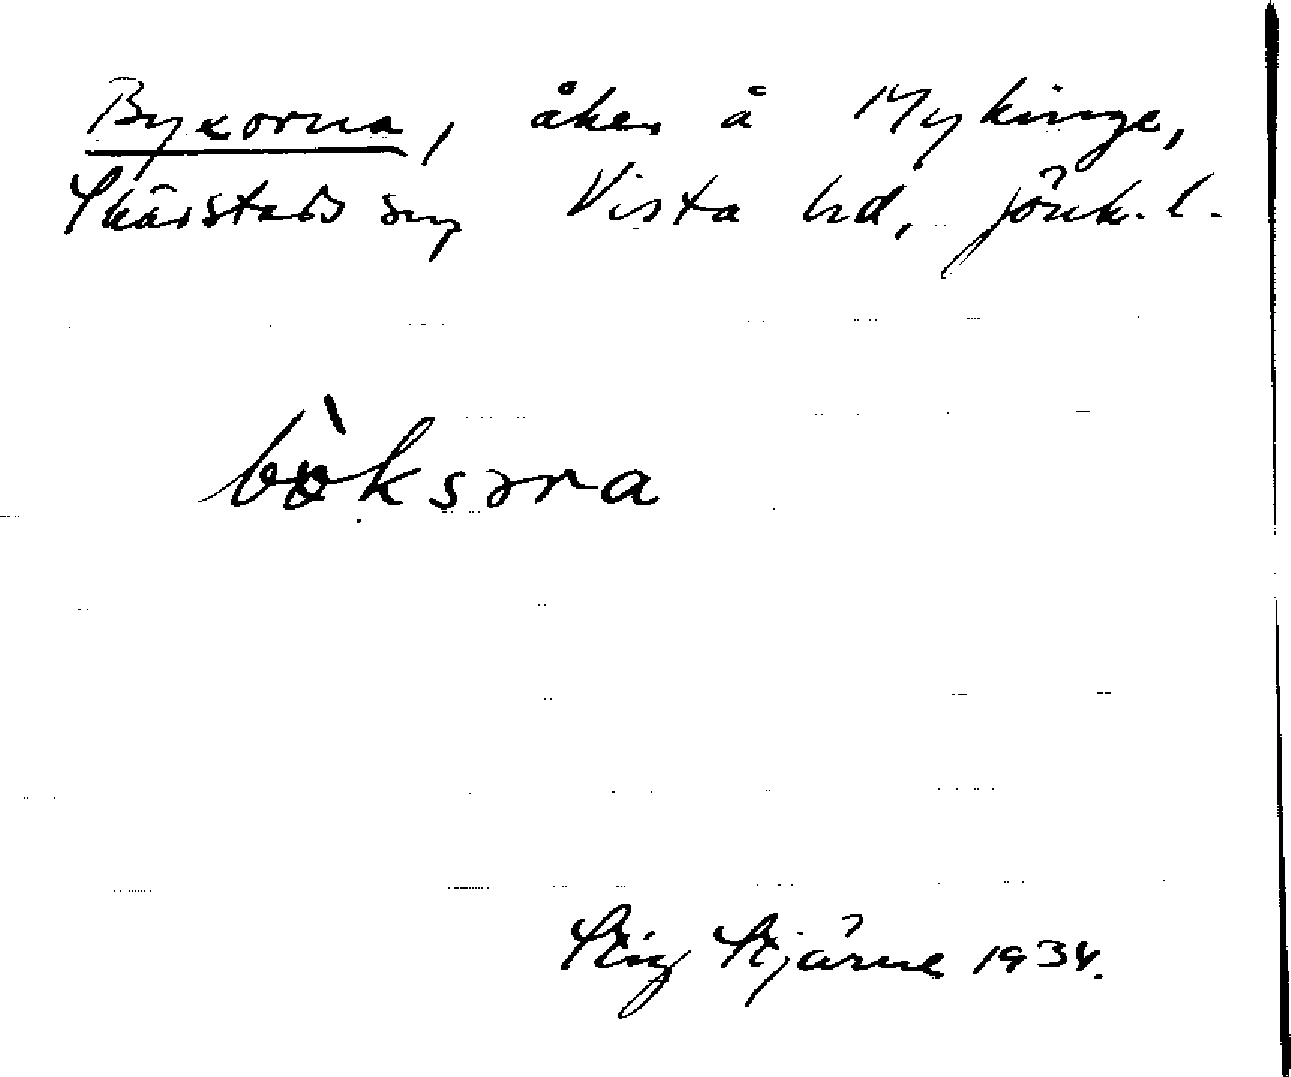 Byxorna, åker å Mykinge,
Skärstads sn, Vista hd, Jönk. l.
bòksəra
Stig Stjärne 1934.